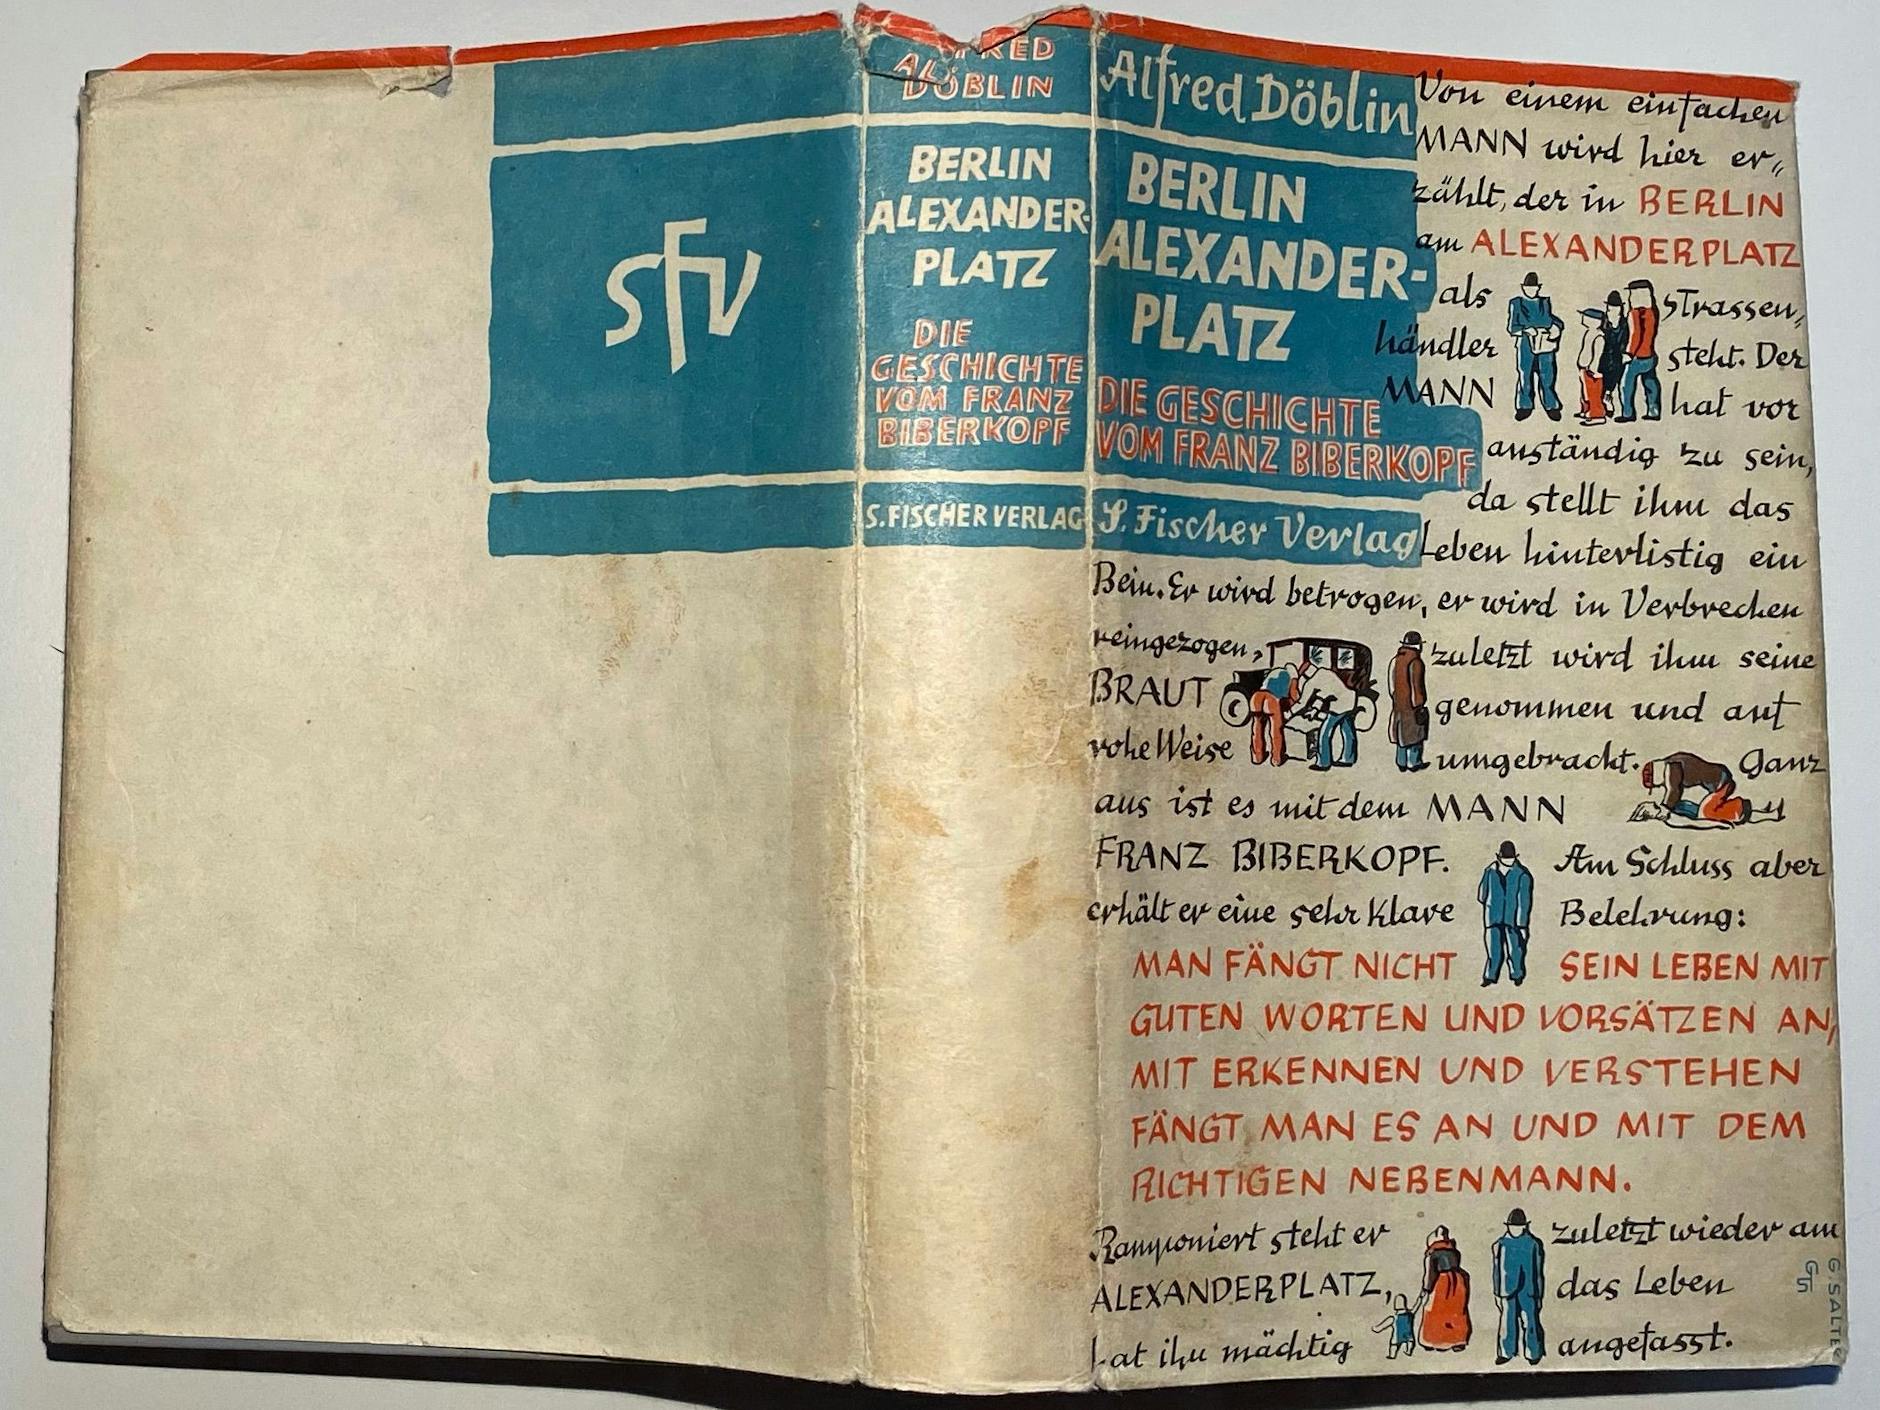 sFv
ALFRED
DÖBLIN
BERLIN
ALEXANDER-
PLATZ
DIE
GESCHICHTE
VOM FRANZ
BIBERKOPF
S. FISCHER VERLAG
Alfred Döblin
BERLIN
ALEXANDER-
PLATZ
DIE GESCHICHTE
VOM FRANZ BIBERKOPF
S. Fischer Verlag
Von einem einfachen
MANN wird hier er-
zählt, der in BERLIN
am ALEXANDERPLATZ
als Strassen-
händler steht. Der
MANN hat vor
anständig zu sein,
da stellt ihm das
Leben hinterlistig ein
Bein. Er wird betrogen, er wird in Verbrechen
reingezogen, zuletzt wird ihm seine
BRAUT genommen und auf
rohe Weise umgebracht. Ganz
aus ist es mit dem MANN
FRANZ BIBERKOPF. Am Schluss aber
erhält er eine sehr klare Belehrung:
MAN FÄNGT NICHT SEIN LEBEN MIT
GUTEN WORTEN UND VORSÄTZEN AN,
MIT ERKENNEN UND VERSTEHEN
FÄNGT MAN ES AN UND MIT DEM
RICHTIGEN NEBENMANN.
Ramponiert steht er zuletzt wieder am
ALEXANDERPLATZ, das Leben
hat ihn mächtig angefasst.
GS
G. SALTER